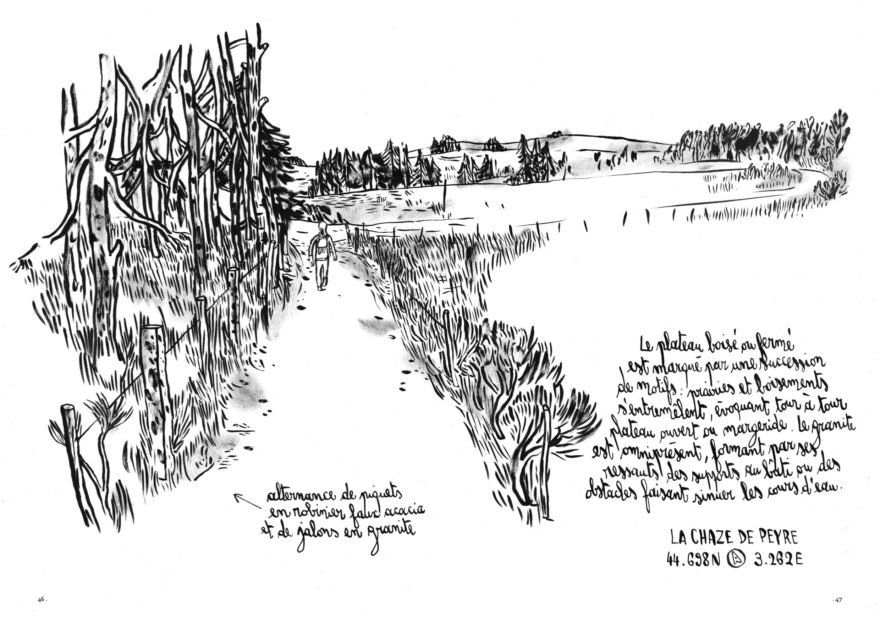 Le plateau boisé ou fermé
est marqué par une succession
de motifs : prairies et boisements
s'entremêlent, évoquant tour à tour
plateau ouvert ou margeride. Le granite
est omniprésent, formant par ses
ressauts des supports au bâti ou des
obstacles faisant sinuer les cours d'eau.
alternance de piquets
en robinier faux acacia
et de jalons en granite
LA CHAZE DE PEYRE
44.698N 3.262E
46.
.47